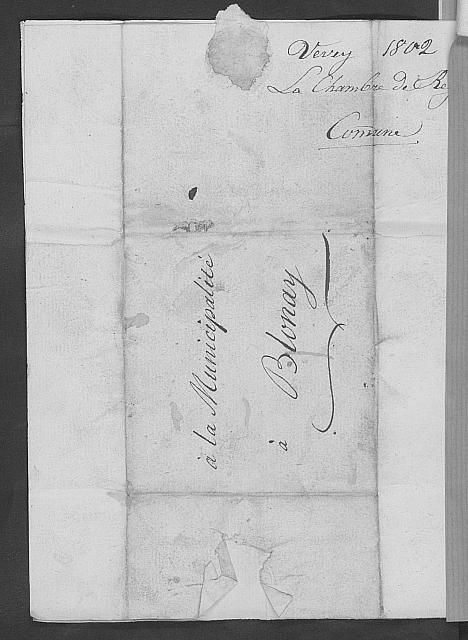 Vevey 1802
La Chambre de Reg
Comune
à la Municipalité
à Blonay